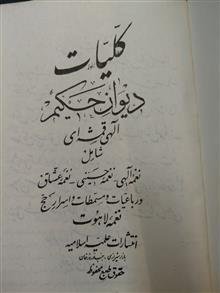 کلیات
دیوان حکیم
الهی قمشه ای
شامل
نغمه الهی - نغمه حسینی - نغمه عشاق
و رباعیات و مسمطات و اسرار حج
نغمه لاهوت
انتشارات علمیه اسلامیه
بازار شیرازی،
حقوق طبع محفوظ